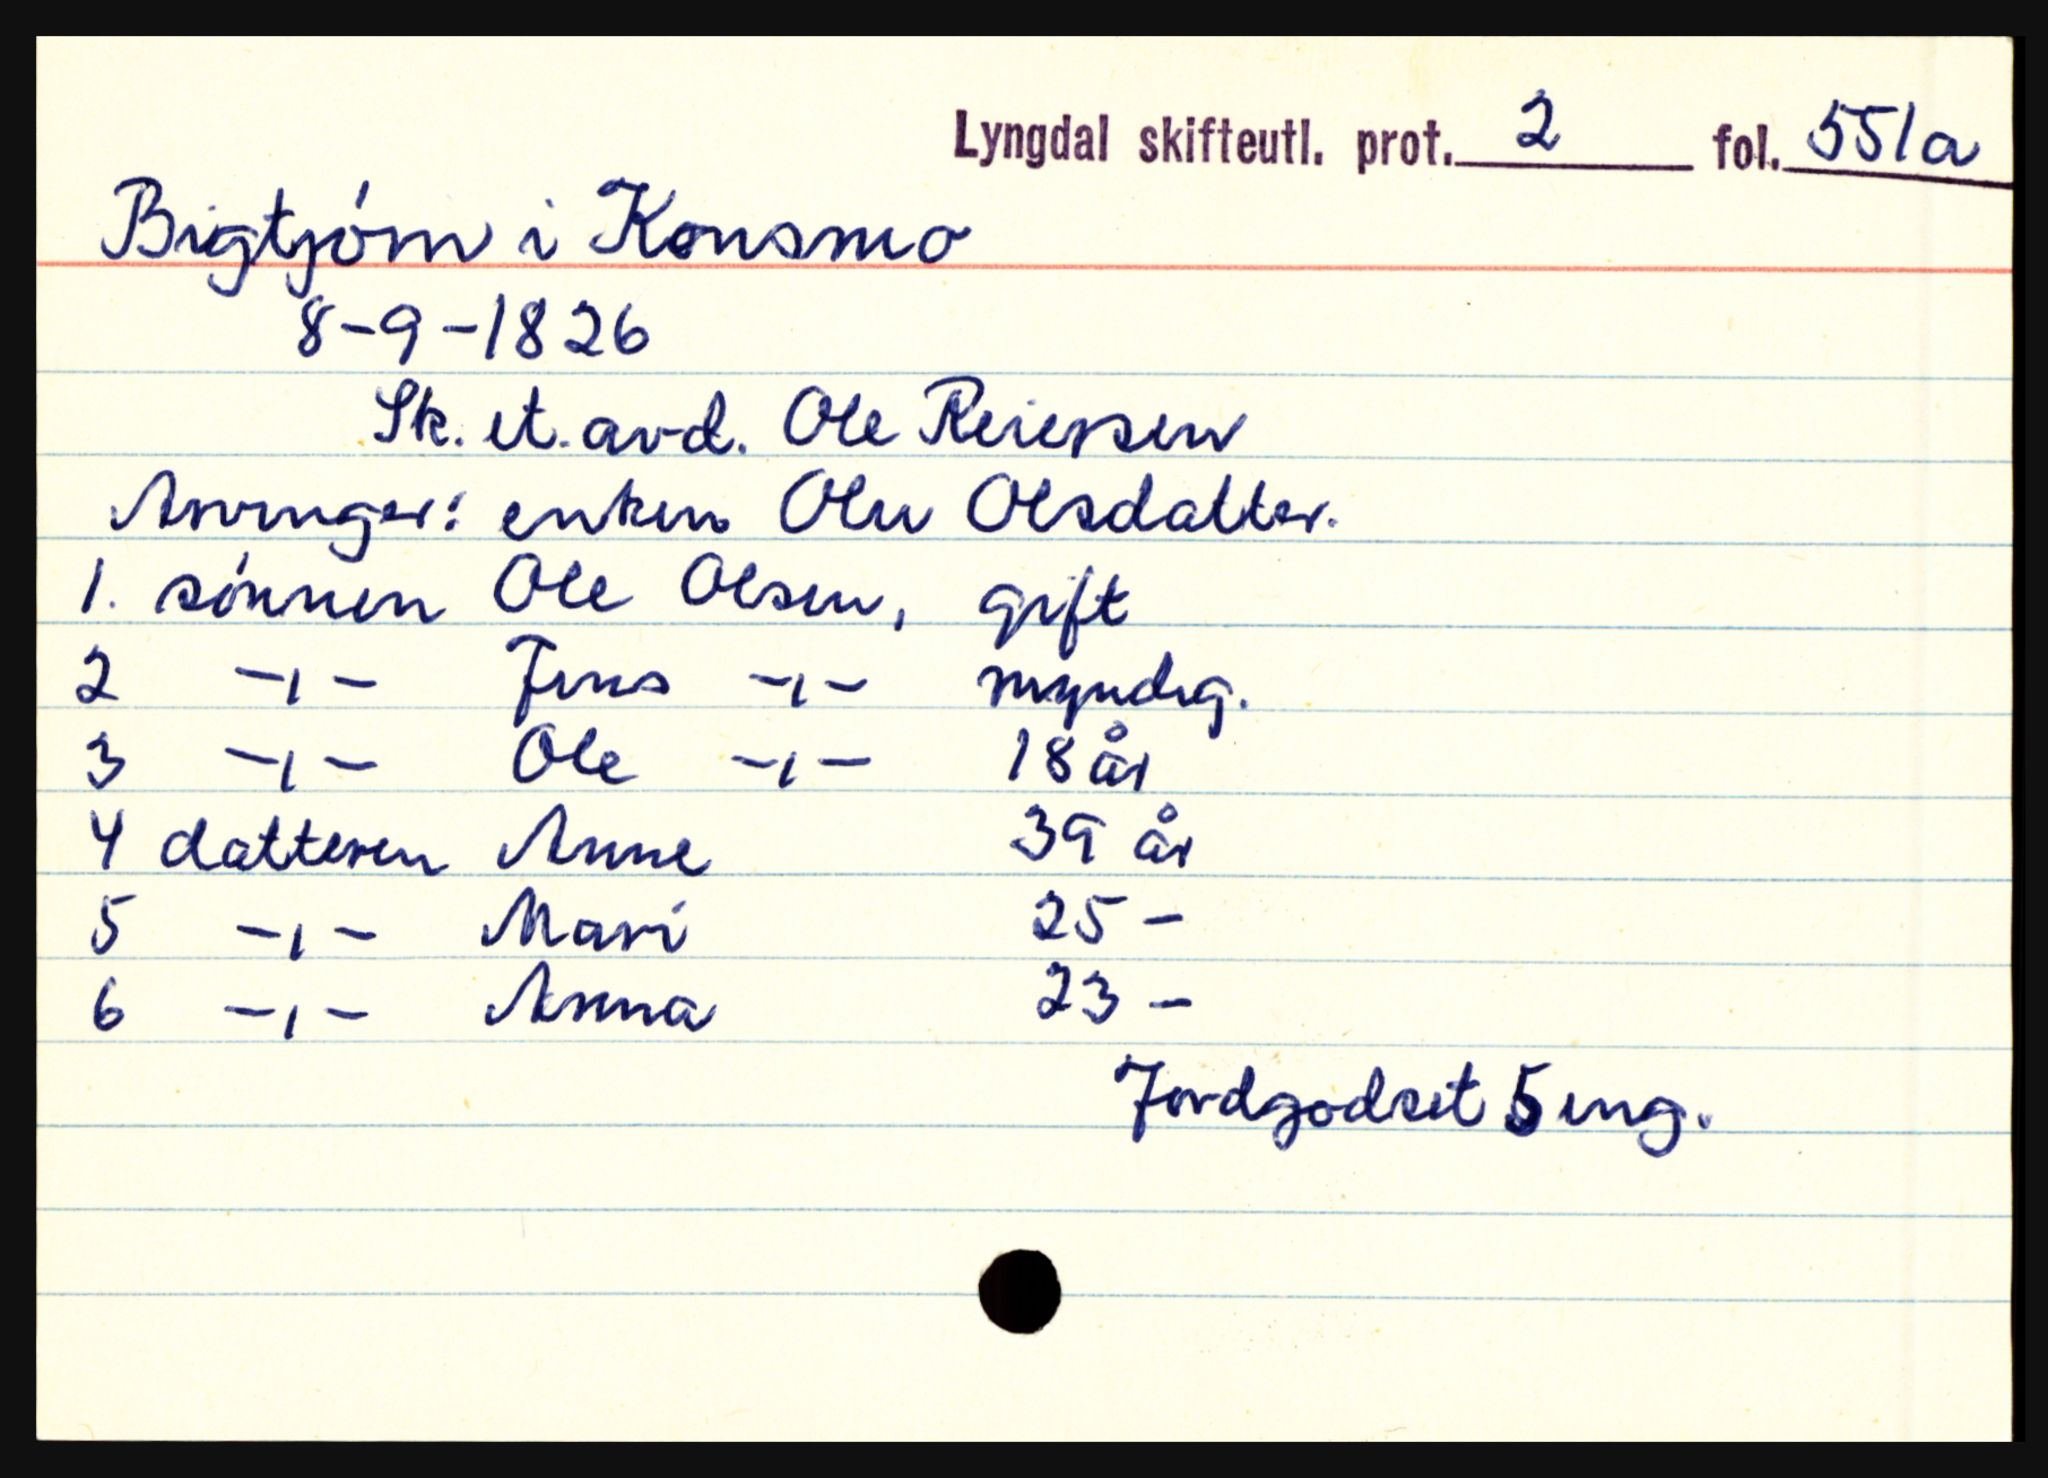 Lyngdal skifteutl. prot. 2 fol. 551a
Bigtjøm i Konsmo
8-9-1826
Sk. et. avd. Ole Reiersen
Arvinger: enken Olu Olsdatter.
1. sønnen Ole Olsen, gift
2 -ı- Jens -ı- myndig.
3 -ı- Ole -ı- 18 år
4 datteren Anne 39 år
5 -ı- Mari 25 -
6 -ı- Anna 23 -
Jordgodset 5 eng.